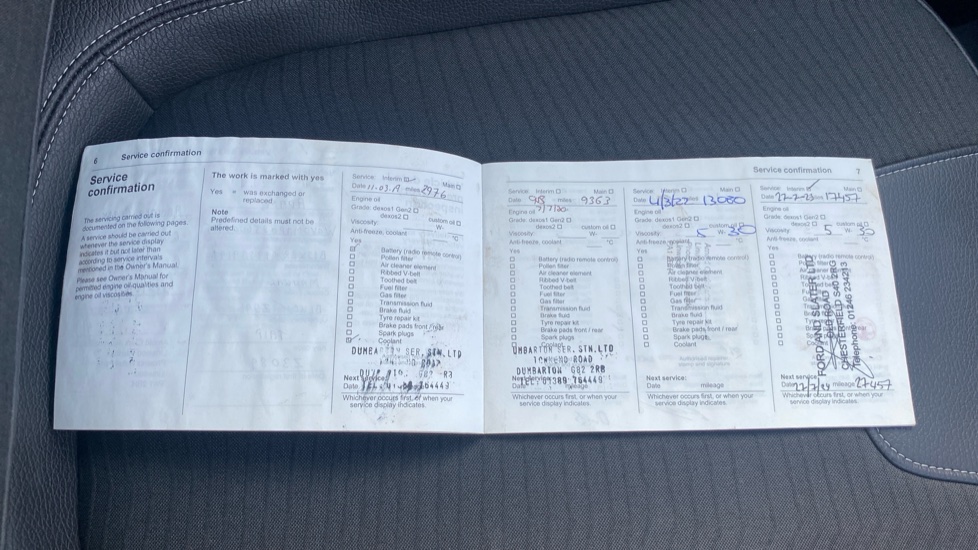 6 Service confirmation
Service
confirmation
The servicing carried out is
documented on the following pages.
A service should be carried out
whenever the service display
indicates it but not later than
according to service intervals
mentioned in the Owner's Manual.
Please see Owner's Manual for
permitted engine oil qualities and
engine oil viscosities.
The work is marked with yes
Yes = was exchanged or
replaced
Note
Predefined details must not be
altered.
Service: Interim Main
Date miles 2976
Engine oil
Grade: dexos1 Gen2
dexos2 custom oil
Viscosity: W-
Anti-freeze, coolant °C
Yes
Battery (radio remote control)
Pollen filter
Air cleaner element
Ribbed V-belt
Toothed belt
Fuel filter
Gas filter
Transmission fluid
Brake fluid
Tyre repair kit
Brake pads front / rear
Spark plugs
Coolant
SER. STN. LTD
Next service:
Date
Whichever occurs first, or when your
service display indicates.
Service confirmation 7
Service: Interim Main
Date miles 9363
Engine oil
Grade: dexos1 Gen2
dexos2 custom oil
Viscosity: W-
Anti-freeze, coolant °C
Yes
Battery (radio remote control)
Pollen filter
Air cleaner element
Ribbed V-belt
Toothed belt
Fuel filter
Gas filter
Transmission fluid
Brake fluid
Tyre repair kit
Brake pads front / rear
Spark plugs
UMBARTON SER. STN. LTD
TOWNEND ROAD
DUMBARTON G82 2RB
TEL: 01389 764443
Whichever occurs first, or when your
service display indicates.
Service: Interim Main
Date 4/3/22 13080
Engine oil
Grade: dexos1 Gen2
dexos2 custom oil
Viscosity: 5 W- 30
Anti-freeze, coolant °C
Yes
Battery (radio remote control)
Pollen filter
Air cleaner element
Ribbed V-belt
Toothed belt
Fuel filter
Gas filter
Transmission fluid
Brake fluid
Tyre repair kit
Brake pads front / rear
Spark plugs
Coolant
Next service:
Date mileage
Whichever occurs first, or when your
service display indicates.
Service: Interim Main
Date 17457
Engine oil
Grade: dexos1 Gen2
dexos2 custom oil
Viscosity: 5 W- 30
Anti-freeze, coolant °C
Yes
Battery (radio remote control)
FORD AND SLATER LTD
CHESTERFIELD S40 2RG
Telephone: 01246 234213
Next service:
Date mileage 27457
Whichever occurs first, or when your
service display indicates.